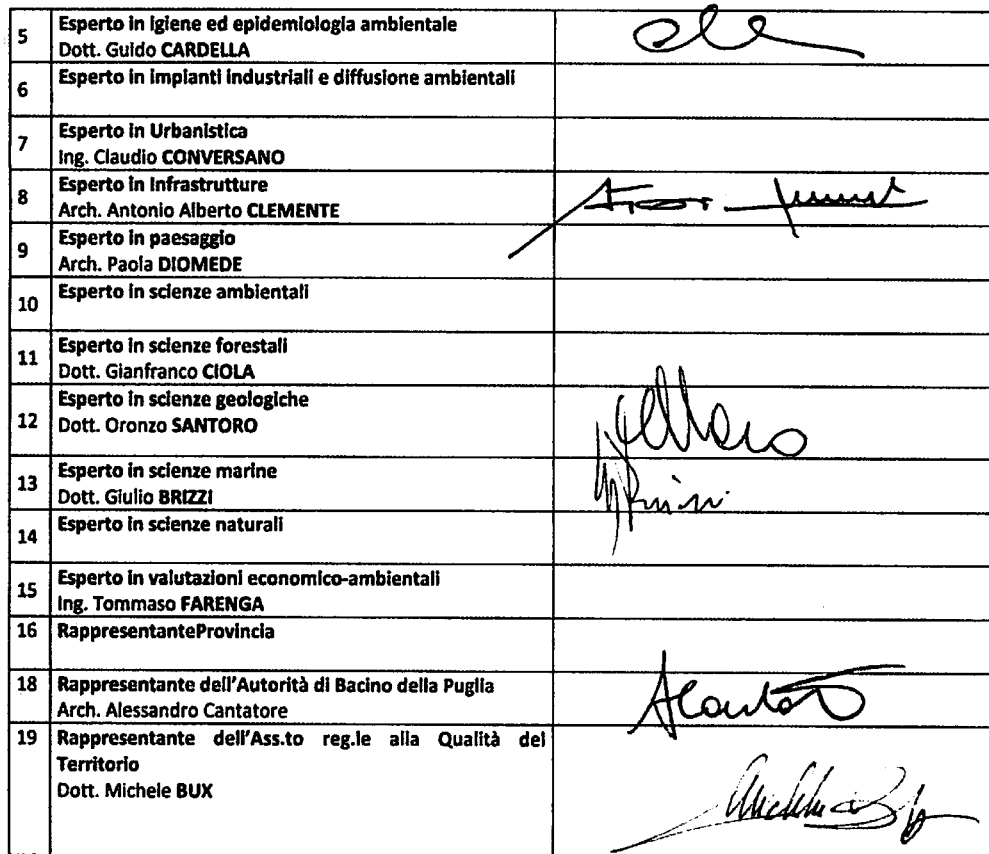 5 Esperto in igiene ed epidemiologia ambientale
Dott. Guido CARDELLA
6 Esperto in impianti industriali e diffusione ambientali
7 Esperto in Urbanistica
Ing. Claudio CONVERSANO
8 Esperto in Infrastrutture
Arch. Antonio Alberto CLEMENTE
9 Esperto in paesaggio
Arch. Paola DIOMEDE
10 Esperto in scienze ambientali
11 Esperto in scienze forestali
Dott. Gianfranco CIOLA
12 Esperto in scienze geologiche
Dott. Oronzo SANTORO
13 Esperto in scienze marine
Dott. Giulio BRIZZI
14 Esperto in scienze naturali
15 Esperto in valutazioni economico-ambientali
Ing. Tommaso FARENGA
16 RappresentanteProvincia
18 Rappresentante dell'Autorità di Bacino della Puglia
Arch. Alessandro Cantatore
19 Rappresentante dell'Ass.to reg.le alla Qualità del
Territorio
Dott. Michele BUX